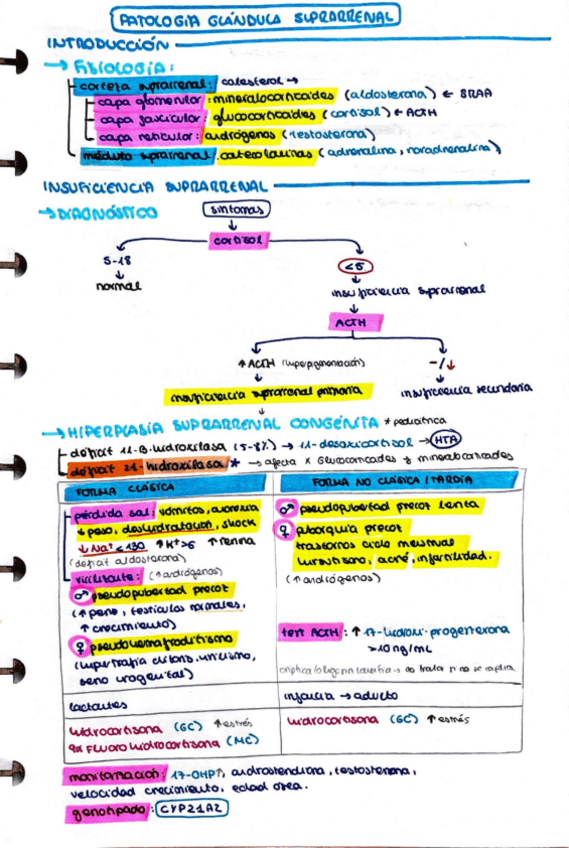 PATOLOGIA GLÁNDULA SUPRARRENAL
INTRODUCCIÓN
→ FISIOLOGÍA:
corteza suprarrenal: colesterol →
capa glomerular: mineralocorticoides (aldosterona) ← SRAA
capa fascicular: glucocorticoides (cortisol) ← ACTH
capa reticular: andrógenos (testosterona)
médula suprarrenal: catecolaminas (adrenalina, noradrenalina)
INSUFICIENCIA SUPRARRENAL
→ DIAGNÓSTICO
síntomas
cortisol
5-18
<5
normal
insuficiencia suprarrenal
ACTH
↑ ACTH (hiperpigmentación)
-/↓
insuficiencia suprarrenal primaria
insuficiencia secundaria
→ HIPERPLASIA SUPRARRENAL CONGÉNITA * pediátrica
déficit 11-B-hidroxilasa (5-8%) → 11-desoxicortisol → HTA
déficit 21-hidroxilasa * → afecta x Glucocorticoides y mineralocorticoides
FORMA CLÁSICA
FORMA NO CLÁSICA / TARDÍA
pérdida sal: vómitos, anorexia
↓ peso, deshidratación, shock
↓ Na+ <130 ↑ K+ >6 ↑ renina
(déficit aldosterona)
virilizante: (↑ andrógenos)
♂ pseudopubertad precoz
(↑ pene, testículos normales,
↑ crecimiento)
♀ pseudohermafroditismo
(hipertrofia clítoris,
seno urogenital)
♂ pseudopubertad precoz lenta
♀ pubarquia precoz
trastornos ciclo menstrual
hirsutismo, acné, infertilidad.
(↑ andrógenos)
test ACTH: ↑ 17-hidroxi-progesterona
>10 ng/mL
→ no tratar si no se
lactantes
infancia → adulto
hidrocortisona (GC) ↑ estrés
9α Fluoro hidrocortisona (MC)
hidrocortisona (GC) ↑ estrés
monitorización: 17-OHP↑, androstendiona, testosterona,
velocidad crecimiento, edad ósea.
genotipado: CYP21A2